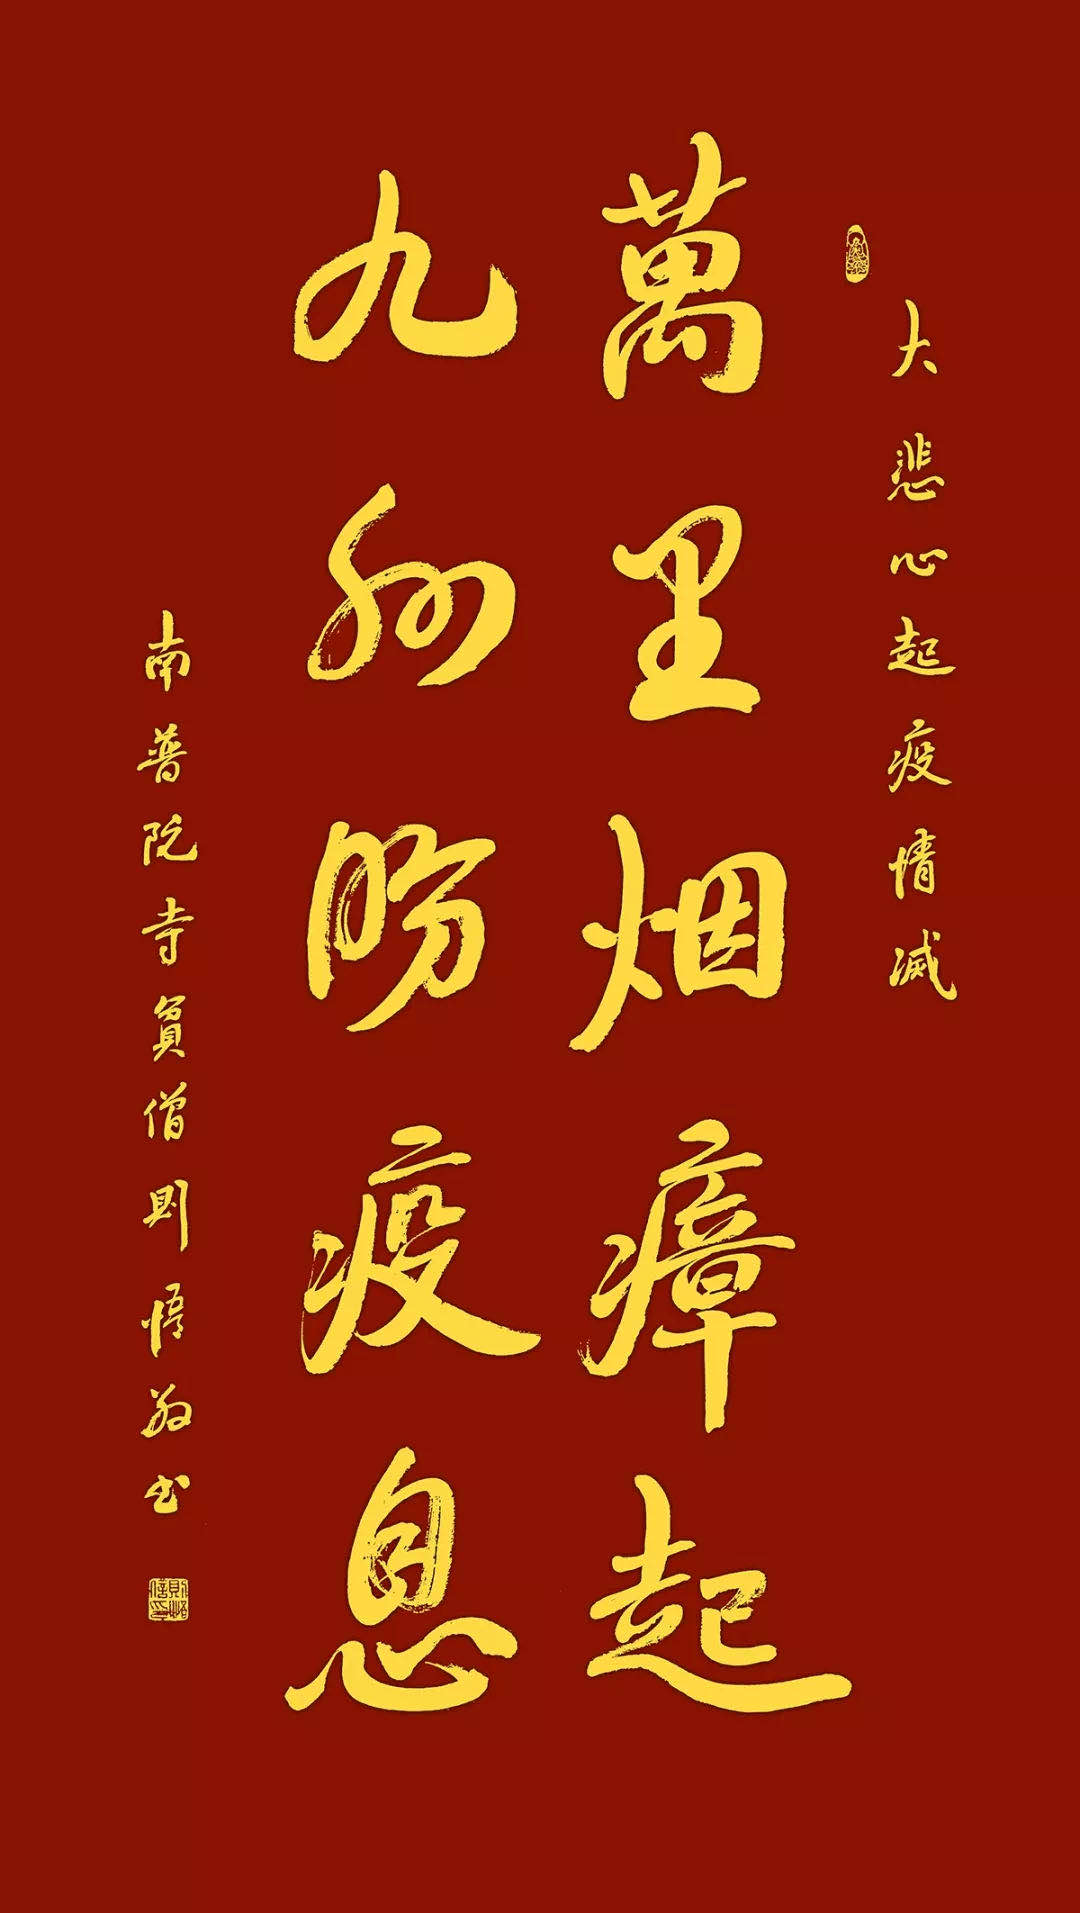 大悲心起疫情滅
萬里烟瘴起
九州防疫息
南普陀寺貧僧則悟敬书